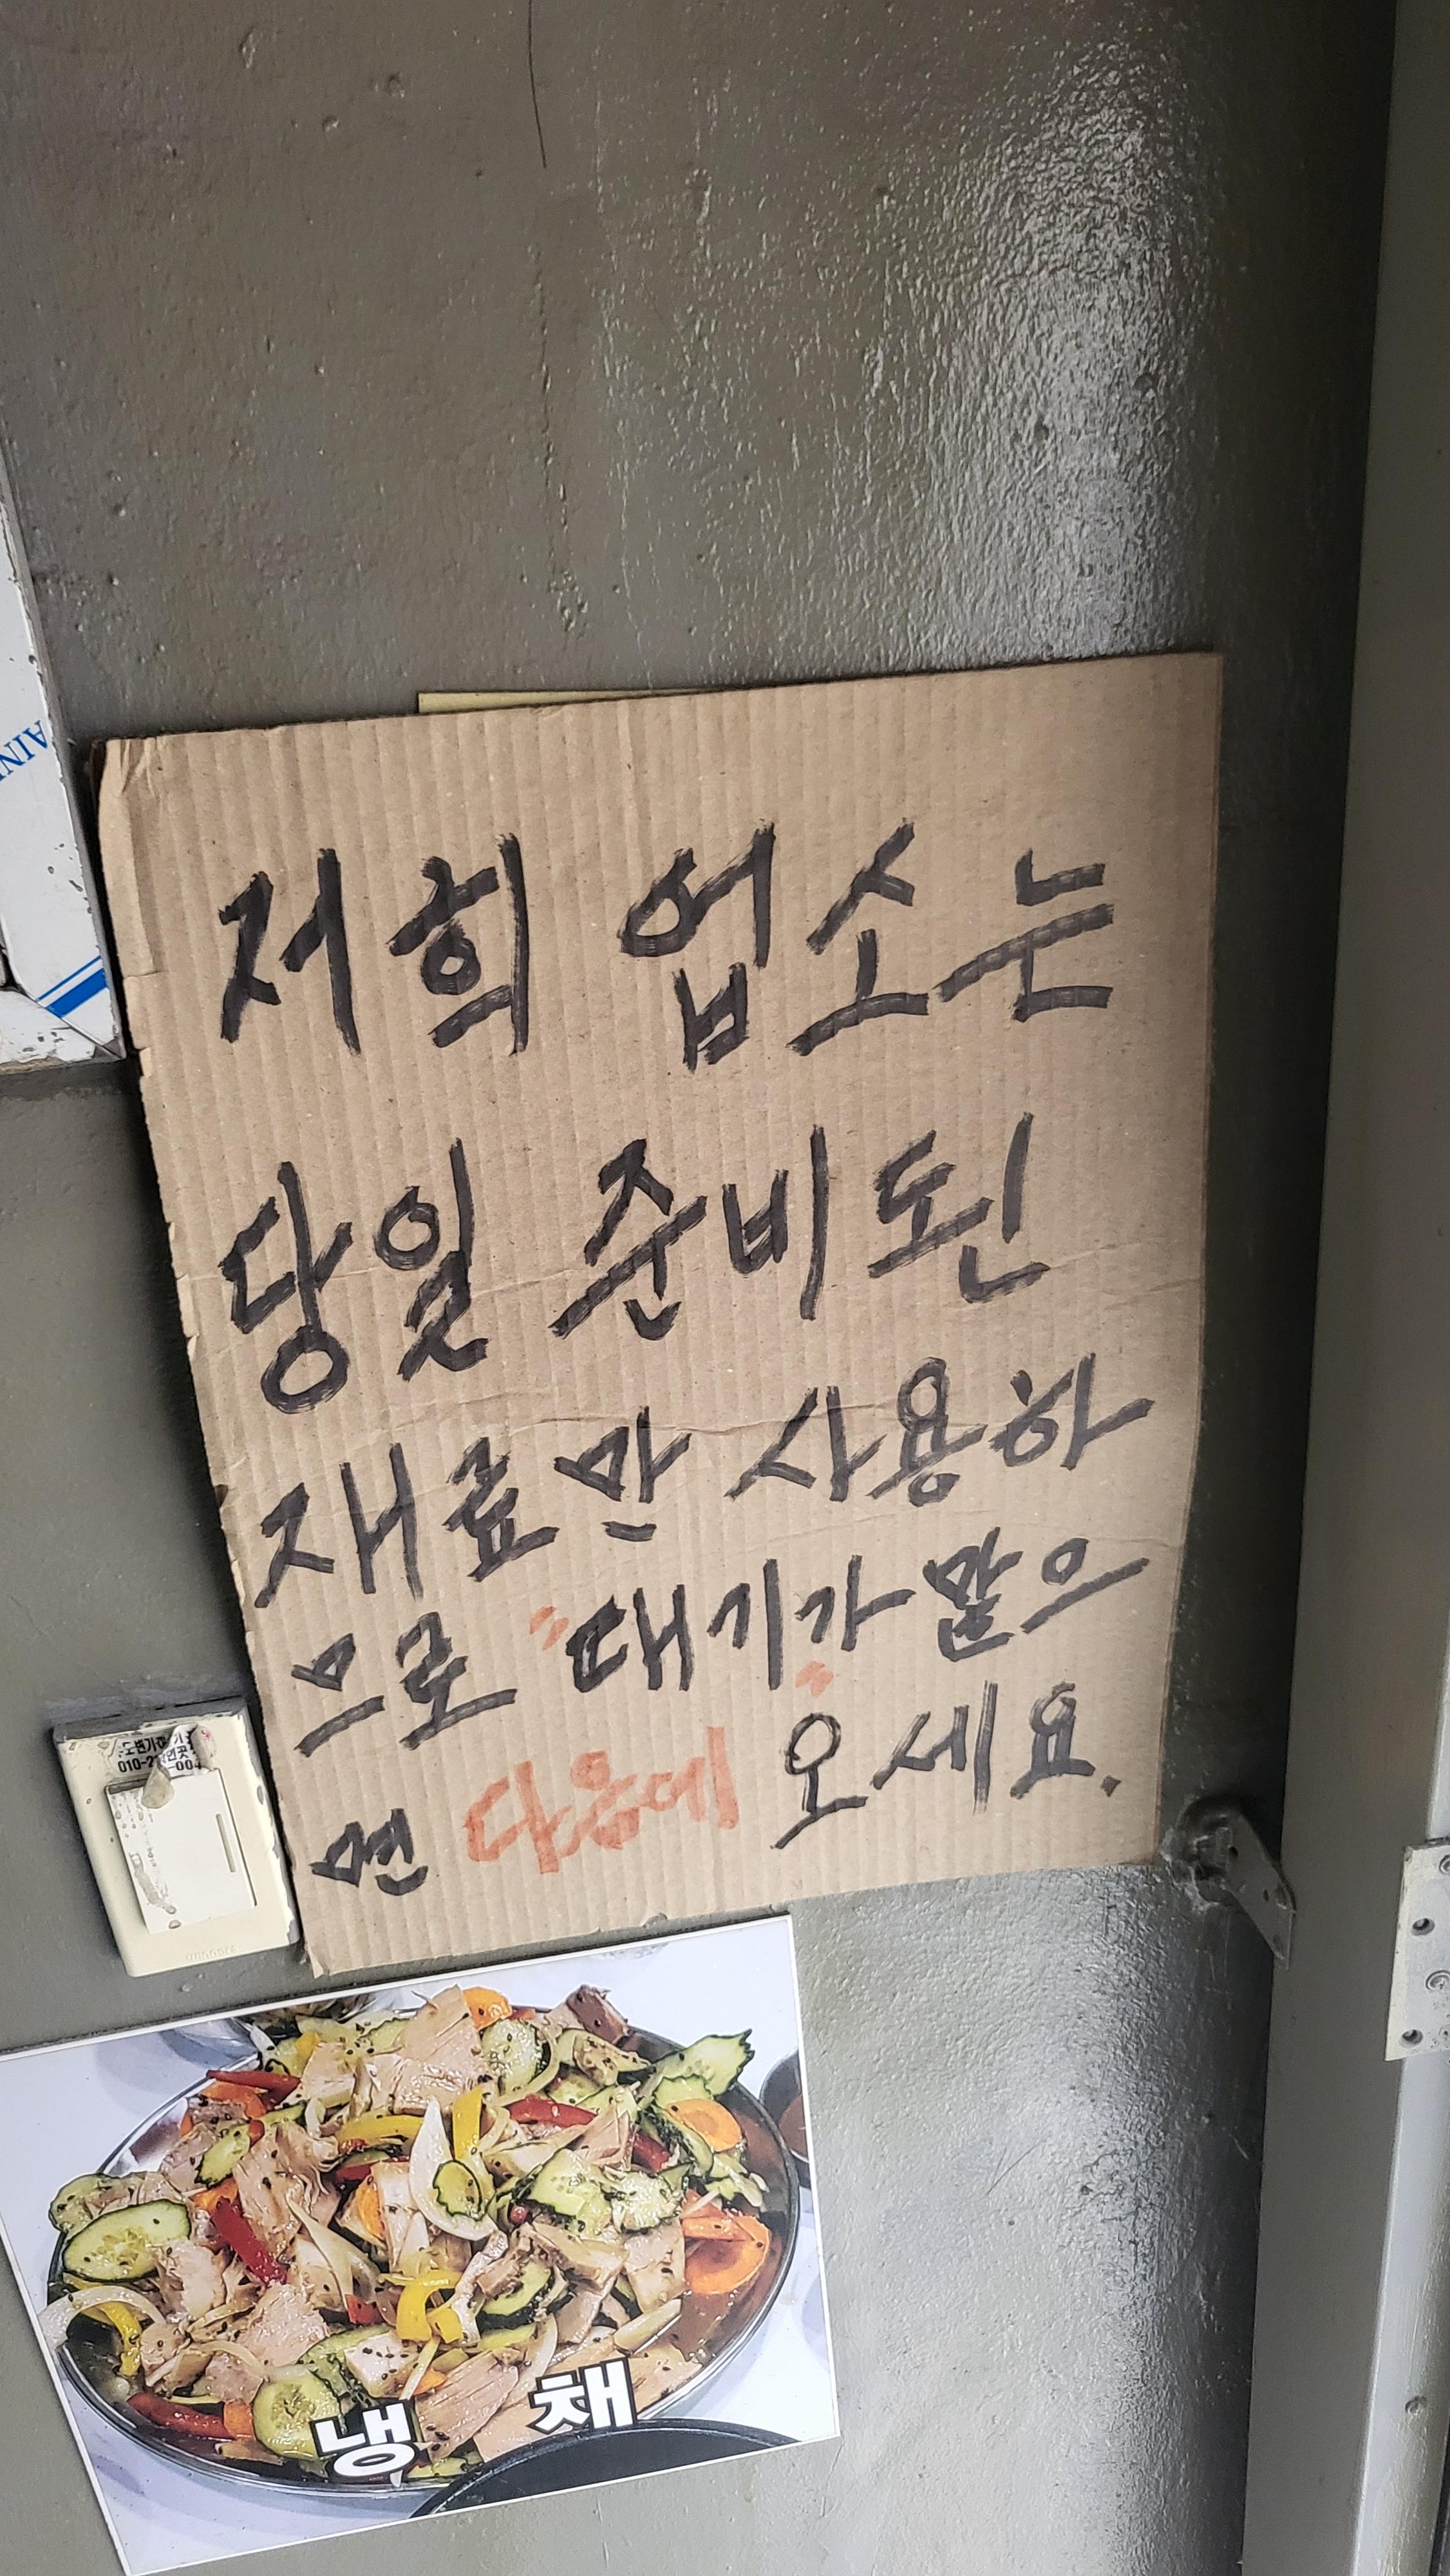 저희 업소는
당일 준비된
재료만 사용하
으로 "대기가" 많으
면 다음에 오세요.
냉 채